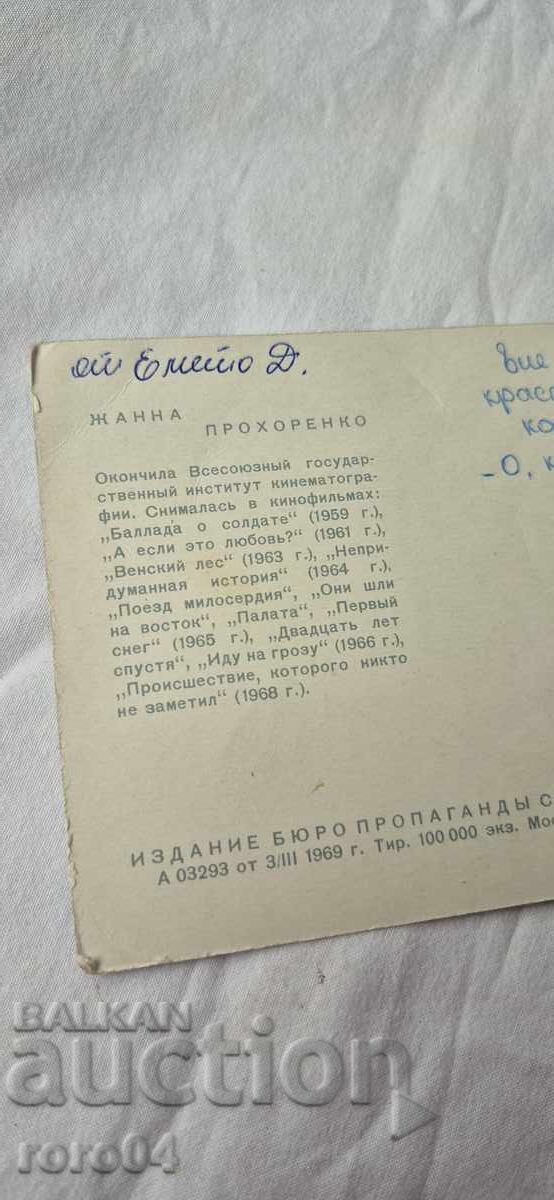 от Емето Д.
ЖАННА
ПРОХОРЕНКО
Окончила Всесоюзный государ-
ственный институт кинематогра-
фии. Снималась в кинофильмах:
„Баллада о солдате“ (1959 г.),
„А если это любовь?“ (1961 г.),
„Венский лес“ (1963 г.), „Непри-
думанная история“ (1964 г.),
„Поезд милосердия“, „Они шли
на восток“, „Палата“, „Первый
снег“ (1965 г.), „Двадцать лет
спустя“, „Иду на грозу“ (1966 г.),
„Происшествие, которого никто
не заметил“ (1968 г.).
ИЗДАНИЕ БЮРО ПРОПАГАНДЫ С
А 03293 от 3/III 1969 г. Тир. 100 000 экз. Мос
вие
крас
ко
-О, к
BALKAN
auction
roro04